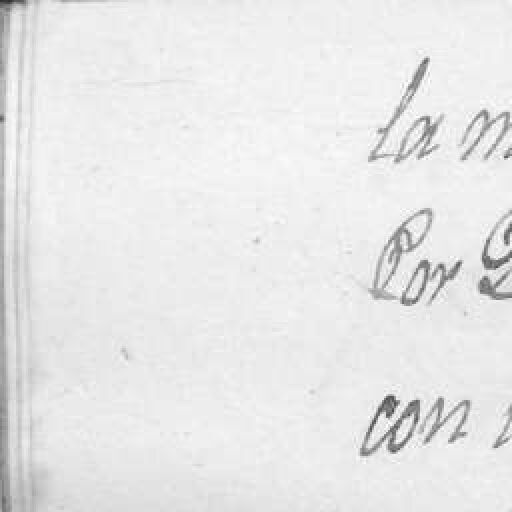 La
Por
con